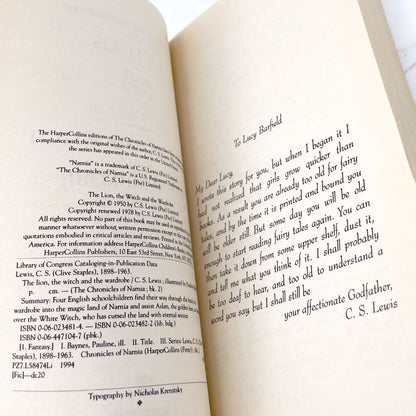 The HarperCollins editions of The Chronicles of Narnia
compliance with the original wishes of the author, C. S. Lewis
the series has appeared in this order in the United
"Narnia" is a trademark of C. S. Lewis (Pte) Limited.
"The Chronicles of Narnia" is a U.S. Registered Trademark
C. S. Lewis (Pte) Limited.
The Lion, the Witch and the Wardrobe
Copyright © 1950 by C.S. Lewis (Pte) Limited
Copyright renewed 1978 by C.S. Lewis (Pte) Limited
All rights reserved. No part of this book may be used or
manner whatsoever without written permission except in
quotations embodied in critical articles and reviews. Printed in
America. For information address HarperCollins
HarperCollins Publishers, 10 East 53rd Street, New York, NY
Library of Congress Cataloging-in-Publication Data
Lewis, C. S. (Clive Staples), 1898-1963.
The lion, the witch and the wardrobe / C. S. Lewis ; illustrated by
p. cm. — (The Chronicles of Narnia ; bk. 2)
Summary: Four English schoolchildren find their way through the back of
wardrobe into the magic land of Narnia and assist Aslan, the golden
over the White Witch, who has cursed the land with eternal winter.
ISBN 0-06-023481-4. — ISBN 0-06-023482-2 (lib. bdg.)
ISBN 0-06-447104-7 (pbk.)
[1. Fantasy.] I. Baynes, Pauline, ill. II. Title. III. Series: Lewis, C. S. (Clive
Staples), 1898-1963. Chronicles of Narnia (HarperCollins (Firm)) ; bk. 2.
PZ7.L58474Li 1994
[Fic]—dc20
Typography by Nicholas Krenitsky
To Lucy Barfield
My Dear Lucy,
I wrote this story for you, but when I began it I
had not realized that girls grow quicker than
books. As a result you are already too old for fairy
tales, and by the time it is printed and bound you
will be older still. But some day you will be old
enough to start reading fairy tales again. You can
then take it down from some upper shelf, dust it,
and tell me what you think of it. I shall probably
be too deaf to hear, and too old to understand a
word you say, but I shall still be
your affectionate Godfather,
C. S. Lewis